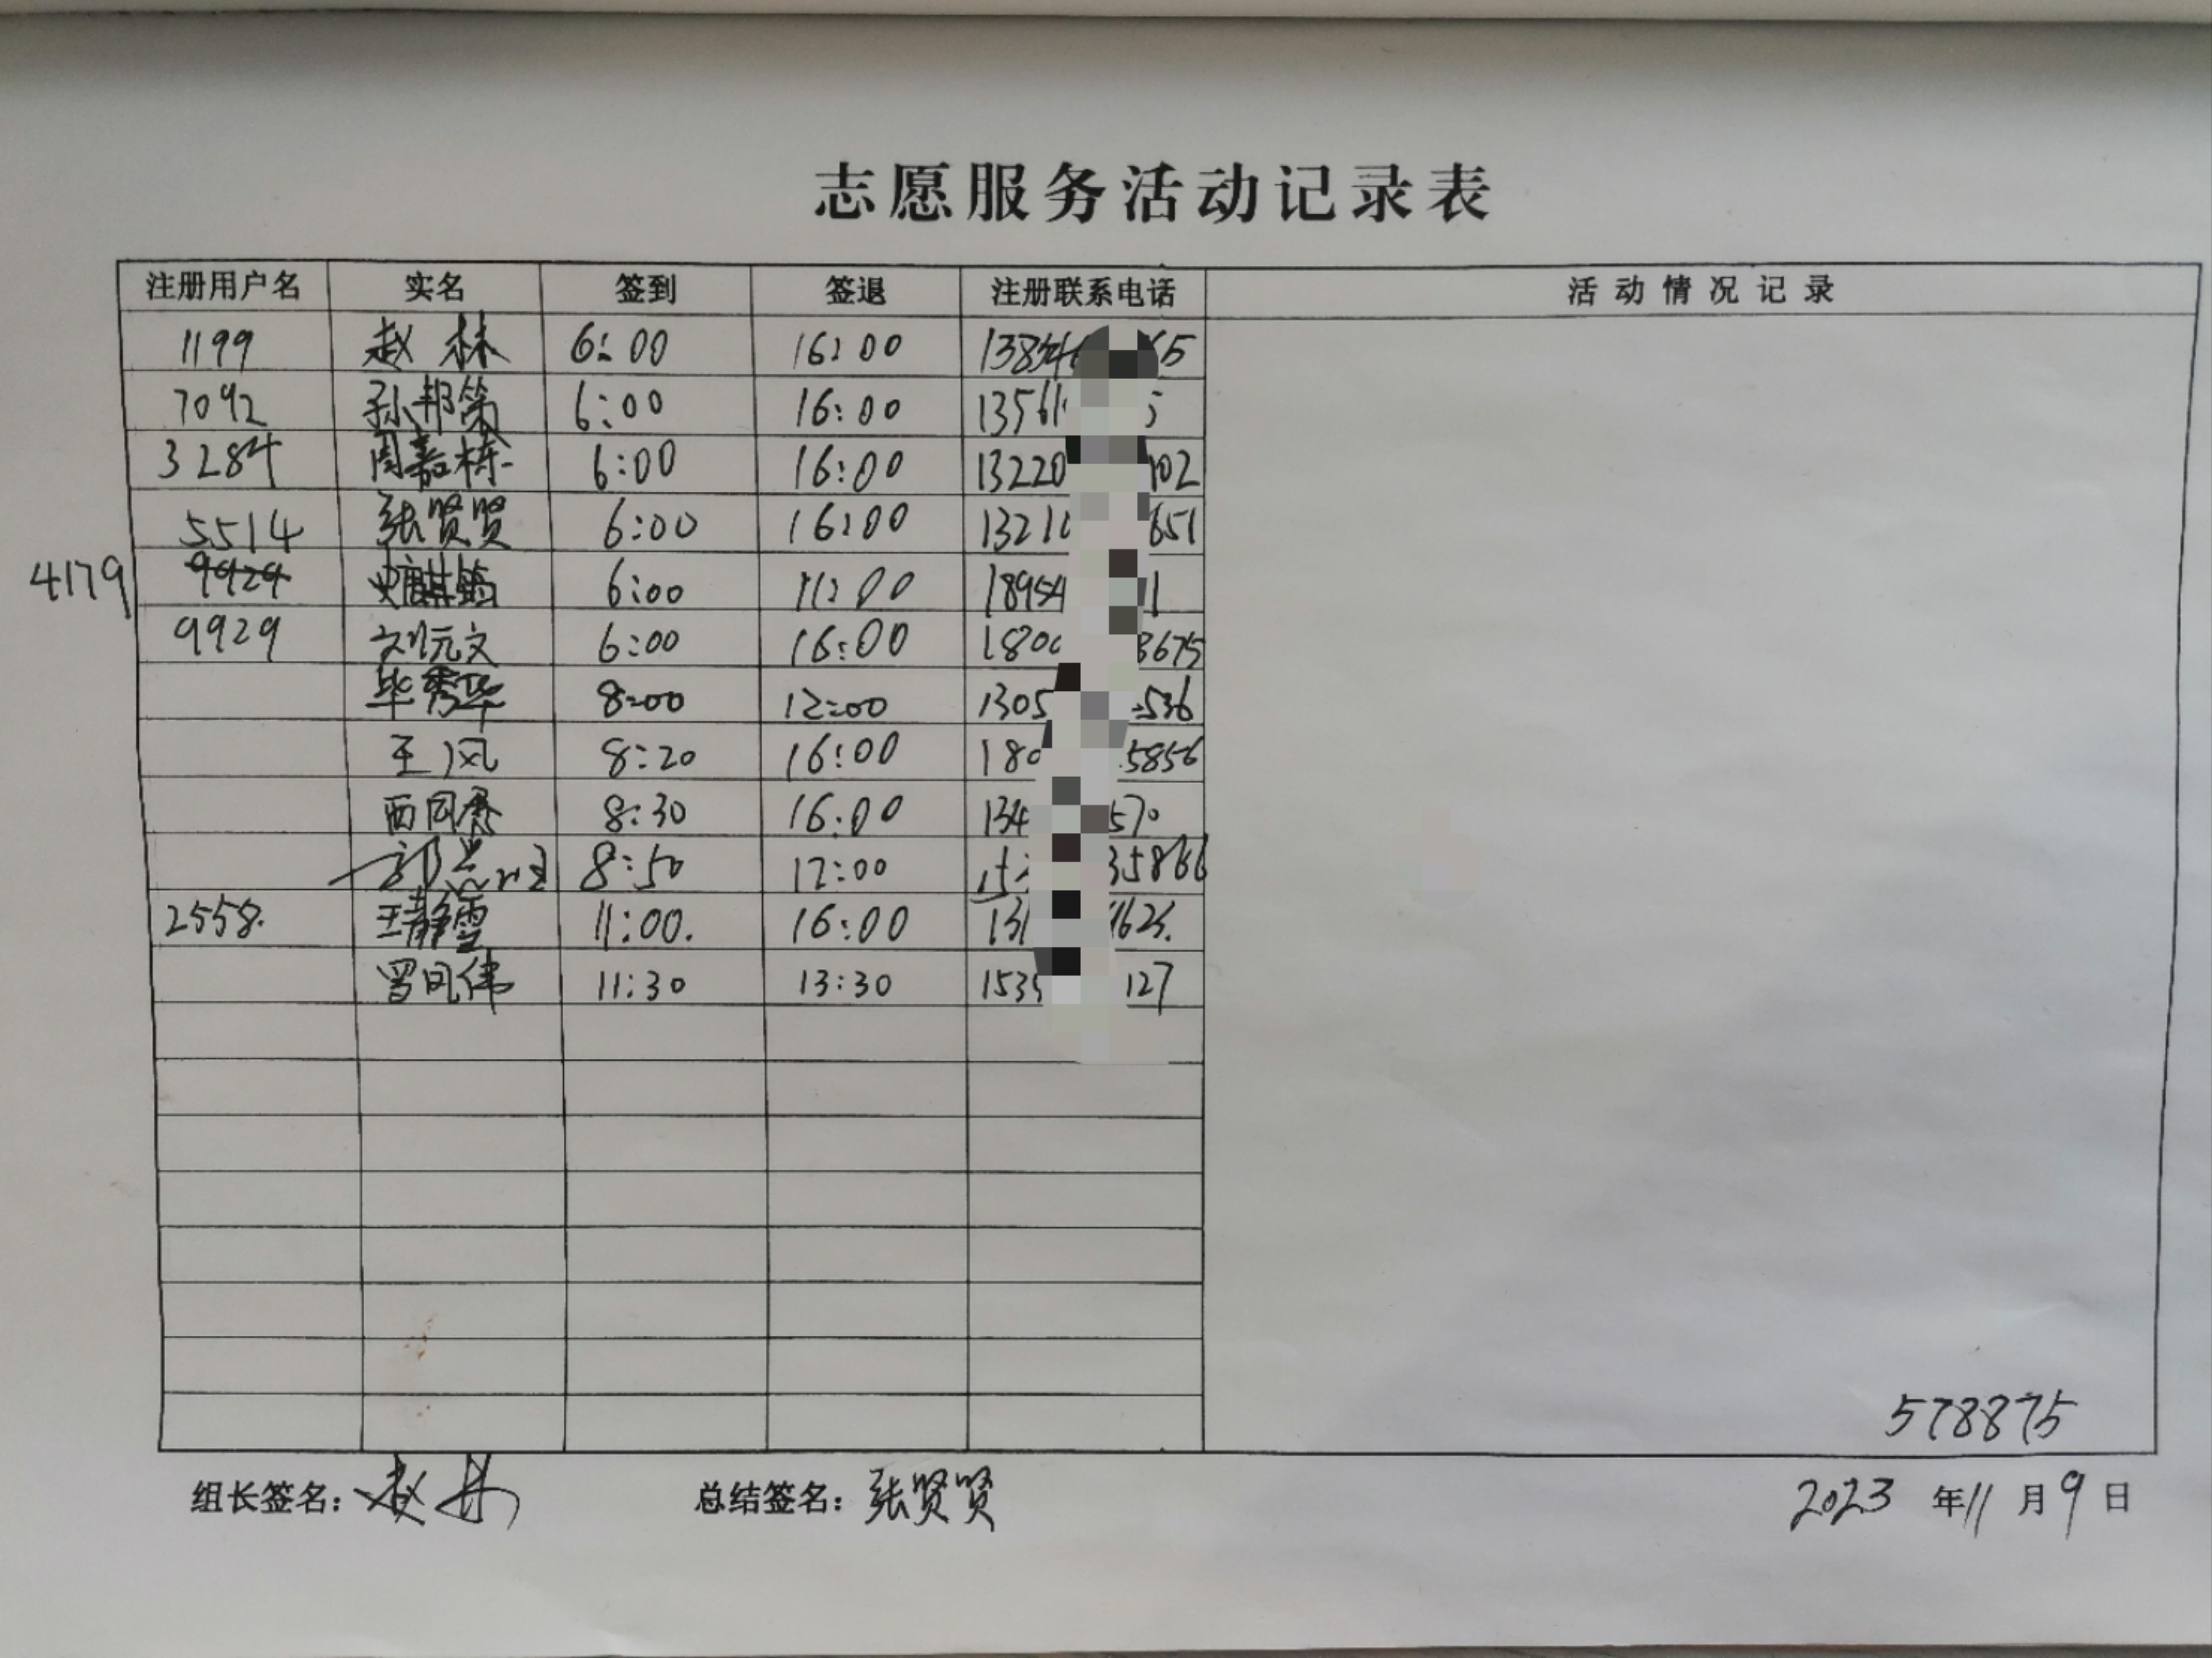 志愿服务活动记录表
注册用户名 实名 签到 签退 注册联系电话 活动情况记录
1199 赵林 6:00 16:00 13854 65
7092 孙邦第 6:00 16:00 13561 5
3284 周嘉栋 6:00 16:00 13220 102
5514 张贤贤 6:00 16:00 13210 651
4179 9929 6:00 11:00 18954 1
9929 刘元文 6:00 16:00 1800 3675
毕秀华 8:00 12:00 1305 536
王风 8:20 16:00 180 5856
西同春 8:30 16:00 134 570
8:50 12:00 15 35866
2558. 王静雪 11:00. 16:00 131 1623.
11:30 13:30 1535 127
578875
组长签名：赵林 总结签名：张贤贤 2023年11月9日